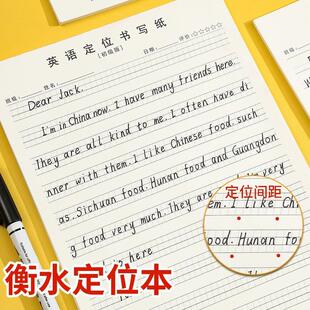 英语定位书写纸
(初端版)
班级: 姓名: 日期: 评价:☆☆☆☆☆
Dear Jack.
I'm in China now. I have many friends here.
They are all kind to me. I often have di
nner with them. I like Chinese food such
as. Sichuan food. Hunan food and Guangdon
g food very much. They are
is here
定位间距
I like Chi
food. Hunan fo
衡水定位本